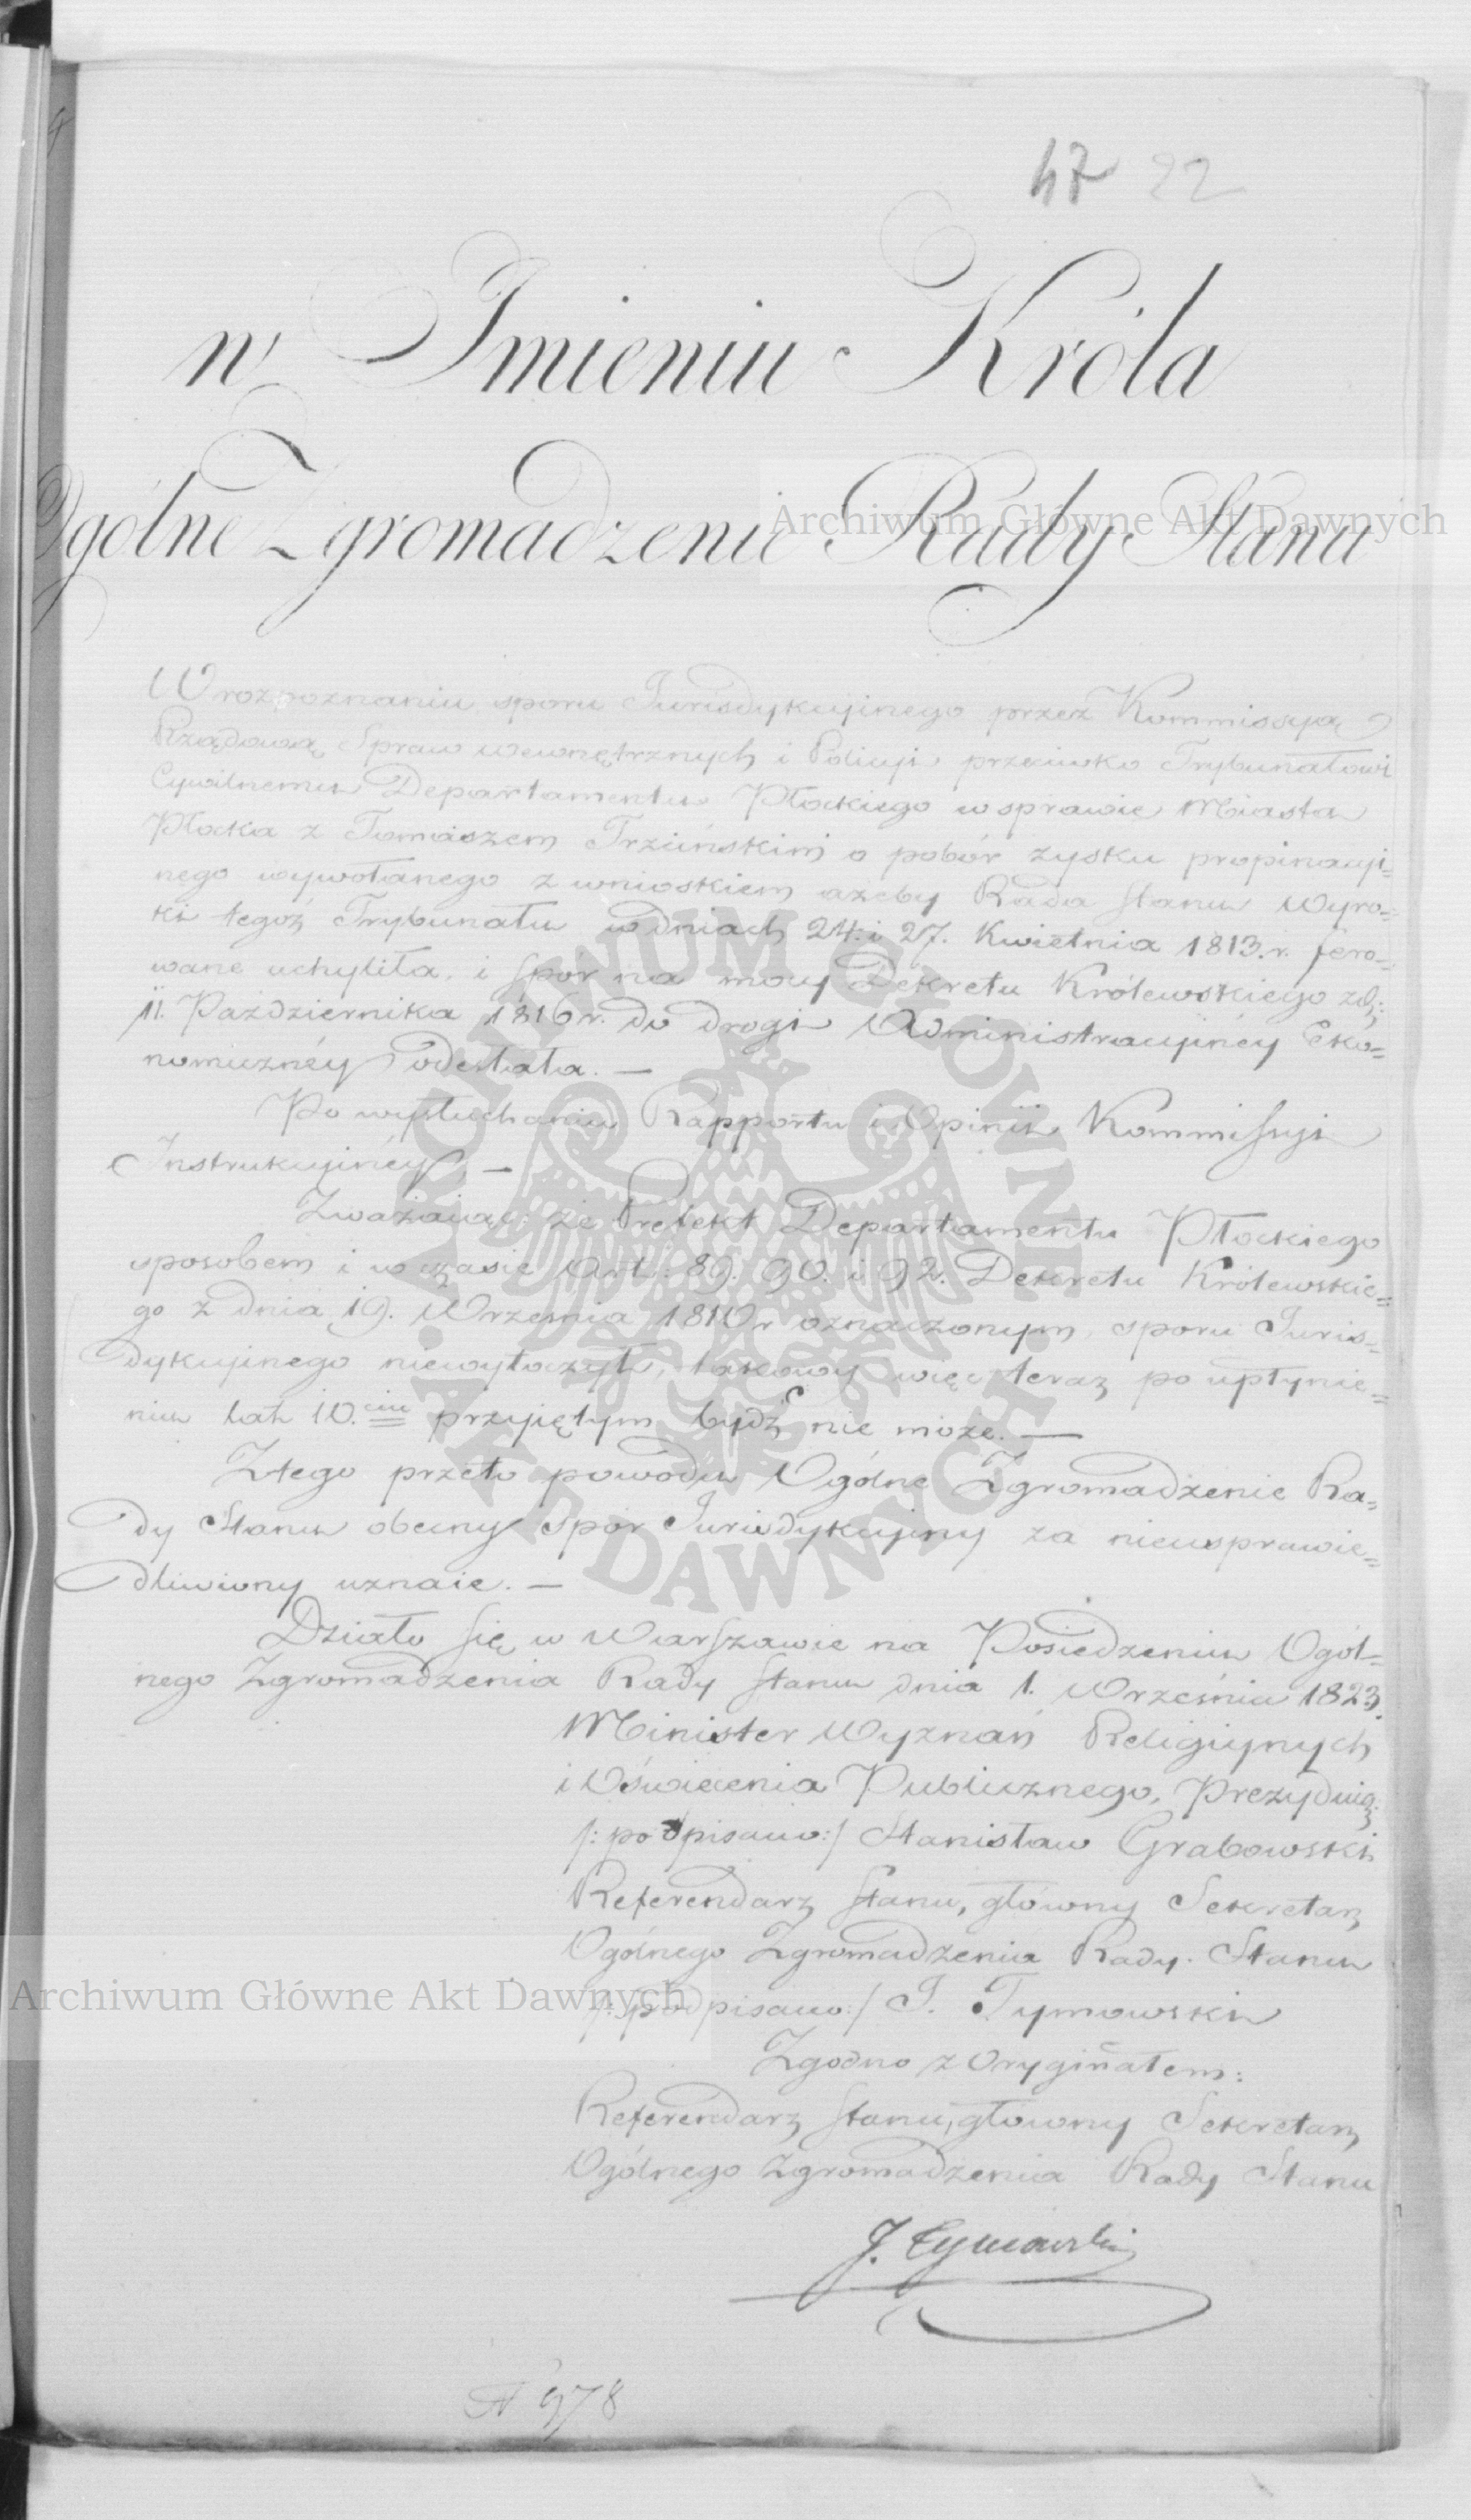 47 22
w Imieniu Króla
Ogólne Zgromadzenie Rady Stanu
W rozpoznaniu sporu Jurisdykcyinego przez Kommissyą
Rządową Spraw wewnętrznych i Policyi przeciwko Trybunałowi
Cywilnemu Departamentu Płockiego w sprawie Miasta
Płocka z Tomaszem Trzcińskim o pobór zysku propinacyi=
nego wywołanego z wnioskiem ażeby Rada Stanu Wyro=
ki tegoż Trybunału w dniach 24. i 27. Kwietnia 1813. r. fero=
wane uchyliła. i spór na mocy Dekretu Królewskiego z d:
11. Października 1816 r. do drogi Administracyinéy Eko=
nomicznéy odesłała. —
Po wysłuchaniu Rapportu i Opinii Kommissyi
Instrukcyinéy, —
Zważaiąc: że Prefekt Departamentu Płockiego
sposobem i w czasie Art: 89. 90. i 92. Dekretu Królewskie=
go z dnia 19. Września 1810 r oznaczonym, sporu Juris=
dykcyinego niewytoczył, takowy więc teraz po upłynie=
niu lat 10.ciu przyiętym bydź nie może. —
Z tego przeto powodu Ogólne Zgromadzenie Ra=
dy Stanu obecny Spór Jurisdykcyiny za nieusprawie=
dliwiony uznaie. —
Działo się w Warszawie na Posiedzeniu Ogól=
nego Zgromadzenia Rady Stanu dnia 1. Września 1823.
Minister Wyznań Religiynych
i Oświecenia Publicznego, Prezyduią:
/: podpisano :/ Stanisław Grabowski
Referendarz Stanu, główny Sekretarz
Ogólnego Zgromadzenia Rady Stanu
/: podpisano :/ J. Tymowski
Zgodno z Oryginałem:
Referendarz Stanu, główny Sekretarz
Ogólnego Zgromadzenia Rady Stanu
J. Tymowski
N 978
Archiwum Główne Akt Dawnych
ARCHIWUM GŁÓWNE AKT DAWNYCH
Archiwum Główne Akt Dawnych